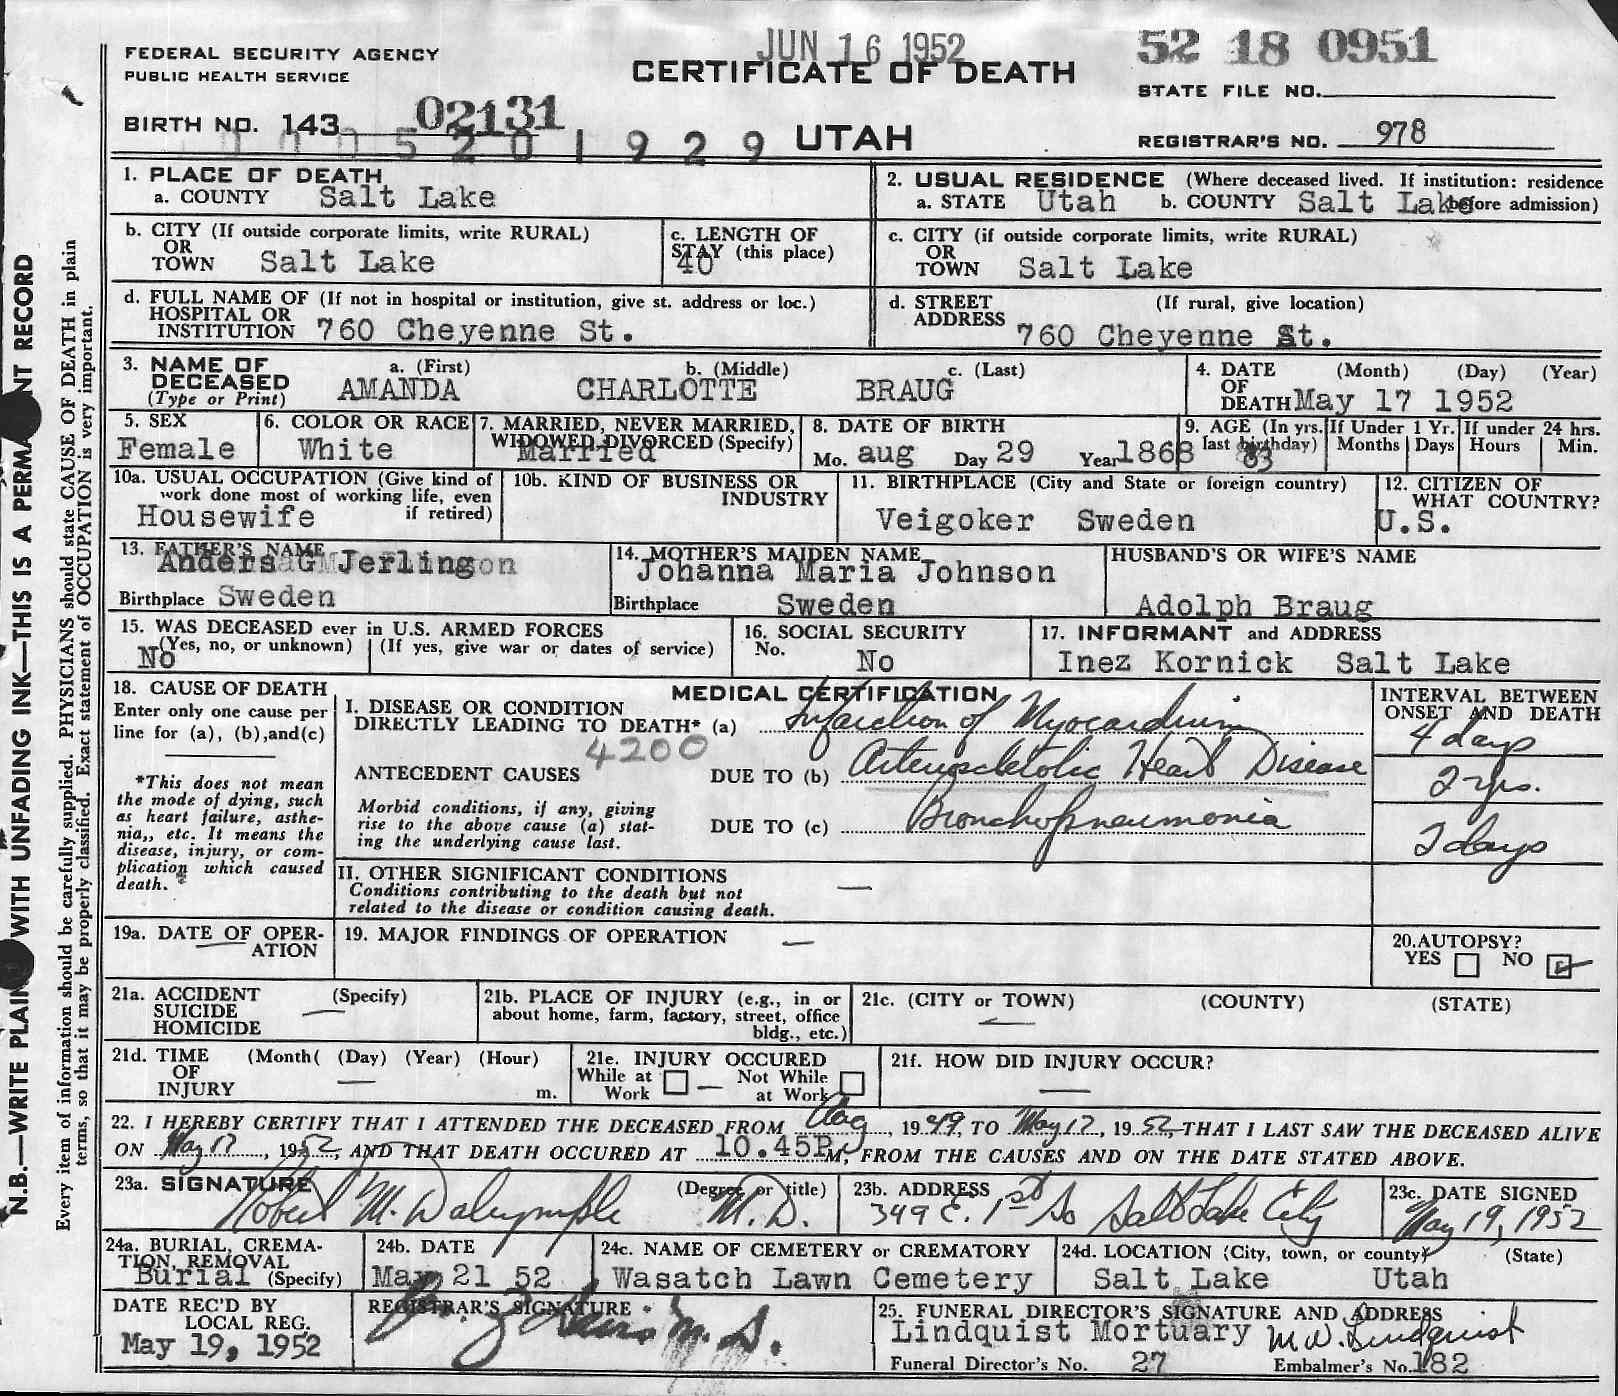 JUN 16 1952
52 18 0951
FEDERAL SECURITY AGENCY
PUBLIC HEALTH SERVICE
CERTIFICATE OF DEATH
STATE FILE NO.
BIRTH NO. 143 02131
1929
UTAH
REGISTRAR'S NO. 978
1. PLACE OF DEATH
a. COUNTY Salt Lake
2. USUAL RESIDENCE (Where deceased lived. If institution: residence before admission)
a. STATE Utah b. COUNTY Salt Lake
b. CITY (If outside corporate limits, write RURAL)
OR
TOWN Salt Lake
c. LENGTH OF
STAY (this place)
40
c. CITY (if outside corporate limits, write RURAL)
OR
TOWN Salt Lake
d. FULL NAME OF (If not in hospital or institution, give st. address or loc.)
HOSPITAL OR
INSTITUTION 760 Cheyenne St.
d. STREET (If rural, give location)
ADDRESS 760 Cheyenne St.
3. NAME OF a. (First) b. (Middle) c. (Last)
DECEASED AMANDA CHARLOTTE BRAUG
(Type or Print)
4. DATE (Month) (Day) (Year)
OF
DEATH May 17 1952
5. SEX
Female
6. COLOR OR RACE
White
7. MARRIED, NEVER MARRIED,
WIDOWED, DIVORCED (Specify)
Married
8. DATE OF BIRTH
Mo. aug Day 29 Year 1868
9. AGE (In yrs.
last birthday)
83
If Under 1 Yr.
Months Days
If under 24 hrs.
Hours Min.
10a. USUAL OCCUPATION (Give kind of
work done most of working life, even
if retired)
Housewife
10b. KIND OF BUSINESS OR
INDUSTRY
11. BIRTHPLACE (City and State or foreign country)
Veigoker Sweden
12. CITIZEN OF
WHAT COUNTRY?
U.S.
13. FATHER'S NAME
Anders G Jerlingson
Birthplace Sweden
14. MOTHER'S MAIDEN NAME
Johanna Maria Johnson
Birthplace Sweden
HUSBAND'S OR WIFE'S NAME
Adolph Braug
15. WAS DECEASED ever in U.S. ARMED FORCES
(Yes, no, or unknown) (If yes, give war or dates of service)
No
16. SOCIAL SECURITY
No.
No
17. INFORMANT and ADDRESS
Inez Kornick Salt Lake
18. CAUSE OF DEATH
Enter only one cause per
line for (a), (b),and(c)
*This does not mean
the mode of dying, such
as heart failure, asthe-
nia,, etc. It means the
disease, injury, or com-
plication which caused
death.
MEDICAL CERTIFICATION
I. DISEASE OR CONDITION
DIRECTLY LEADING TO DEATH* (a) Infarction of Myocardium
4200
ANTECEDENT CAUSES DUE TO (b) Arteriosclerotic Heart Disease
Morbid conditions, if any, giving
rise to the above cause (a) stat-
ing the underlying cause last.
DUE TO (c) Bronchopneumonia
INTERVAL BETWEEN
ONSET AND DEATH
4 days
2 yrs.
2 days
II. OTHER SIGNIFICANT CONDITIONS
Conditions contributing to the death but not
related to the disease or condition causing death.
19a. DATE OF OPER-
ATION
19. MAJOR FINDINGS OF OPERATION
20. AUTOPSY?
YES NO
21a. ACCIDENT (Specify)
SUICIDE
HOMICIDE
21b. PLACE OF INJURY (e.g., in or
about home, farm, factory, street, office
bldg., etc.)
21c. (CITY or TOWN) (COUNTY) (STATE)
21d. TIME (Month( (Day) (Year) (Hour)
OF
INJURY m.
21e. INJURY OCCURED
While at Not While
Work at Work
21f. HOW DID INJURY OCCUR?
22. I HEREBY CERTIFY THAT I ATTENDED THE DECEASED FROM Aug, 1949, TO May 17, 1952, THAT I LAST SAW THE DECEASED ALIVE
ON May 17, 1952, AND THAT DEATH OCCURED AT 10.45P M, FROM THE CAUSES AND ON THE DATE STATED ABOVE.
23a. SIGNATURE (Degree or title)
Robert M. Dalrymple M.D.
23b. ADDRESS
349 E. 1st So Salt Lake City
23c. DATE SIGNED
May 19, 1952
24a. BURIAL, CREMA-
TION, REMOVAL
Burial (Specify)
24b. DATE
May 21 52
24c. NAME OF CEMETERY or CREMATORY
Wasatch Lawn Cemetery
24d. LOCATION (City, town, or county) (State)
Salt Lake Utah
DATE REC'D BY
LOCAL REG.
May 19, 1952
REGISTRAR'S SIGNATURE
M.D.
25. FUNERAL DIRECTOR'S SIGNATURE AND ADDRESS
Lindquist Mortuary M W. Lindquist
Funeral Director's No. 27 Embalmer's No. 182
N.B.—WRITE PLAIN WITH UNFADING INK—THIS IS A PERMA NT RECORD
Every item of information should be carefully supplied. PHYSICIANS should state CAUSE OF DEATH in plain
terms, so that it may be properly classified. Exact statement of OCCUPATION is very important.